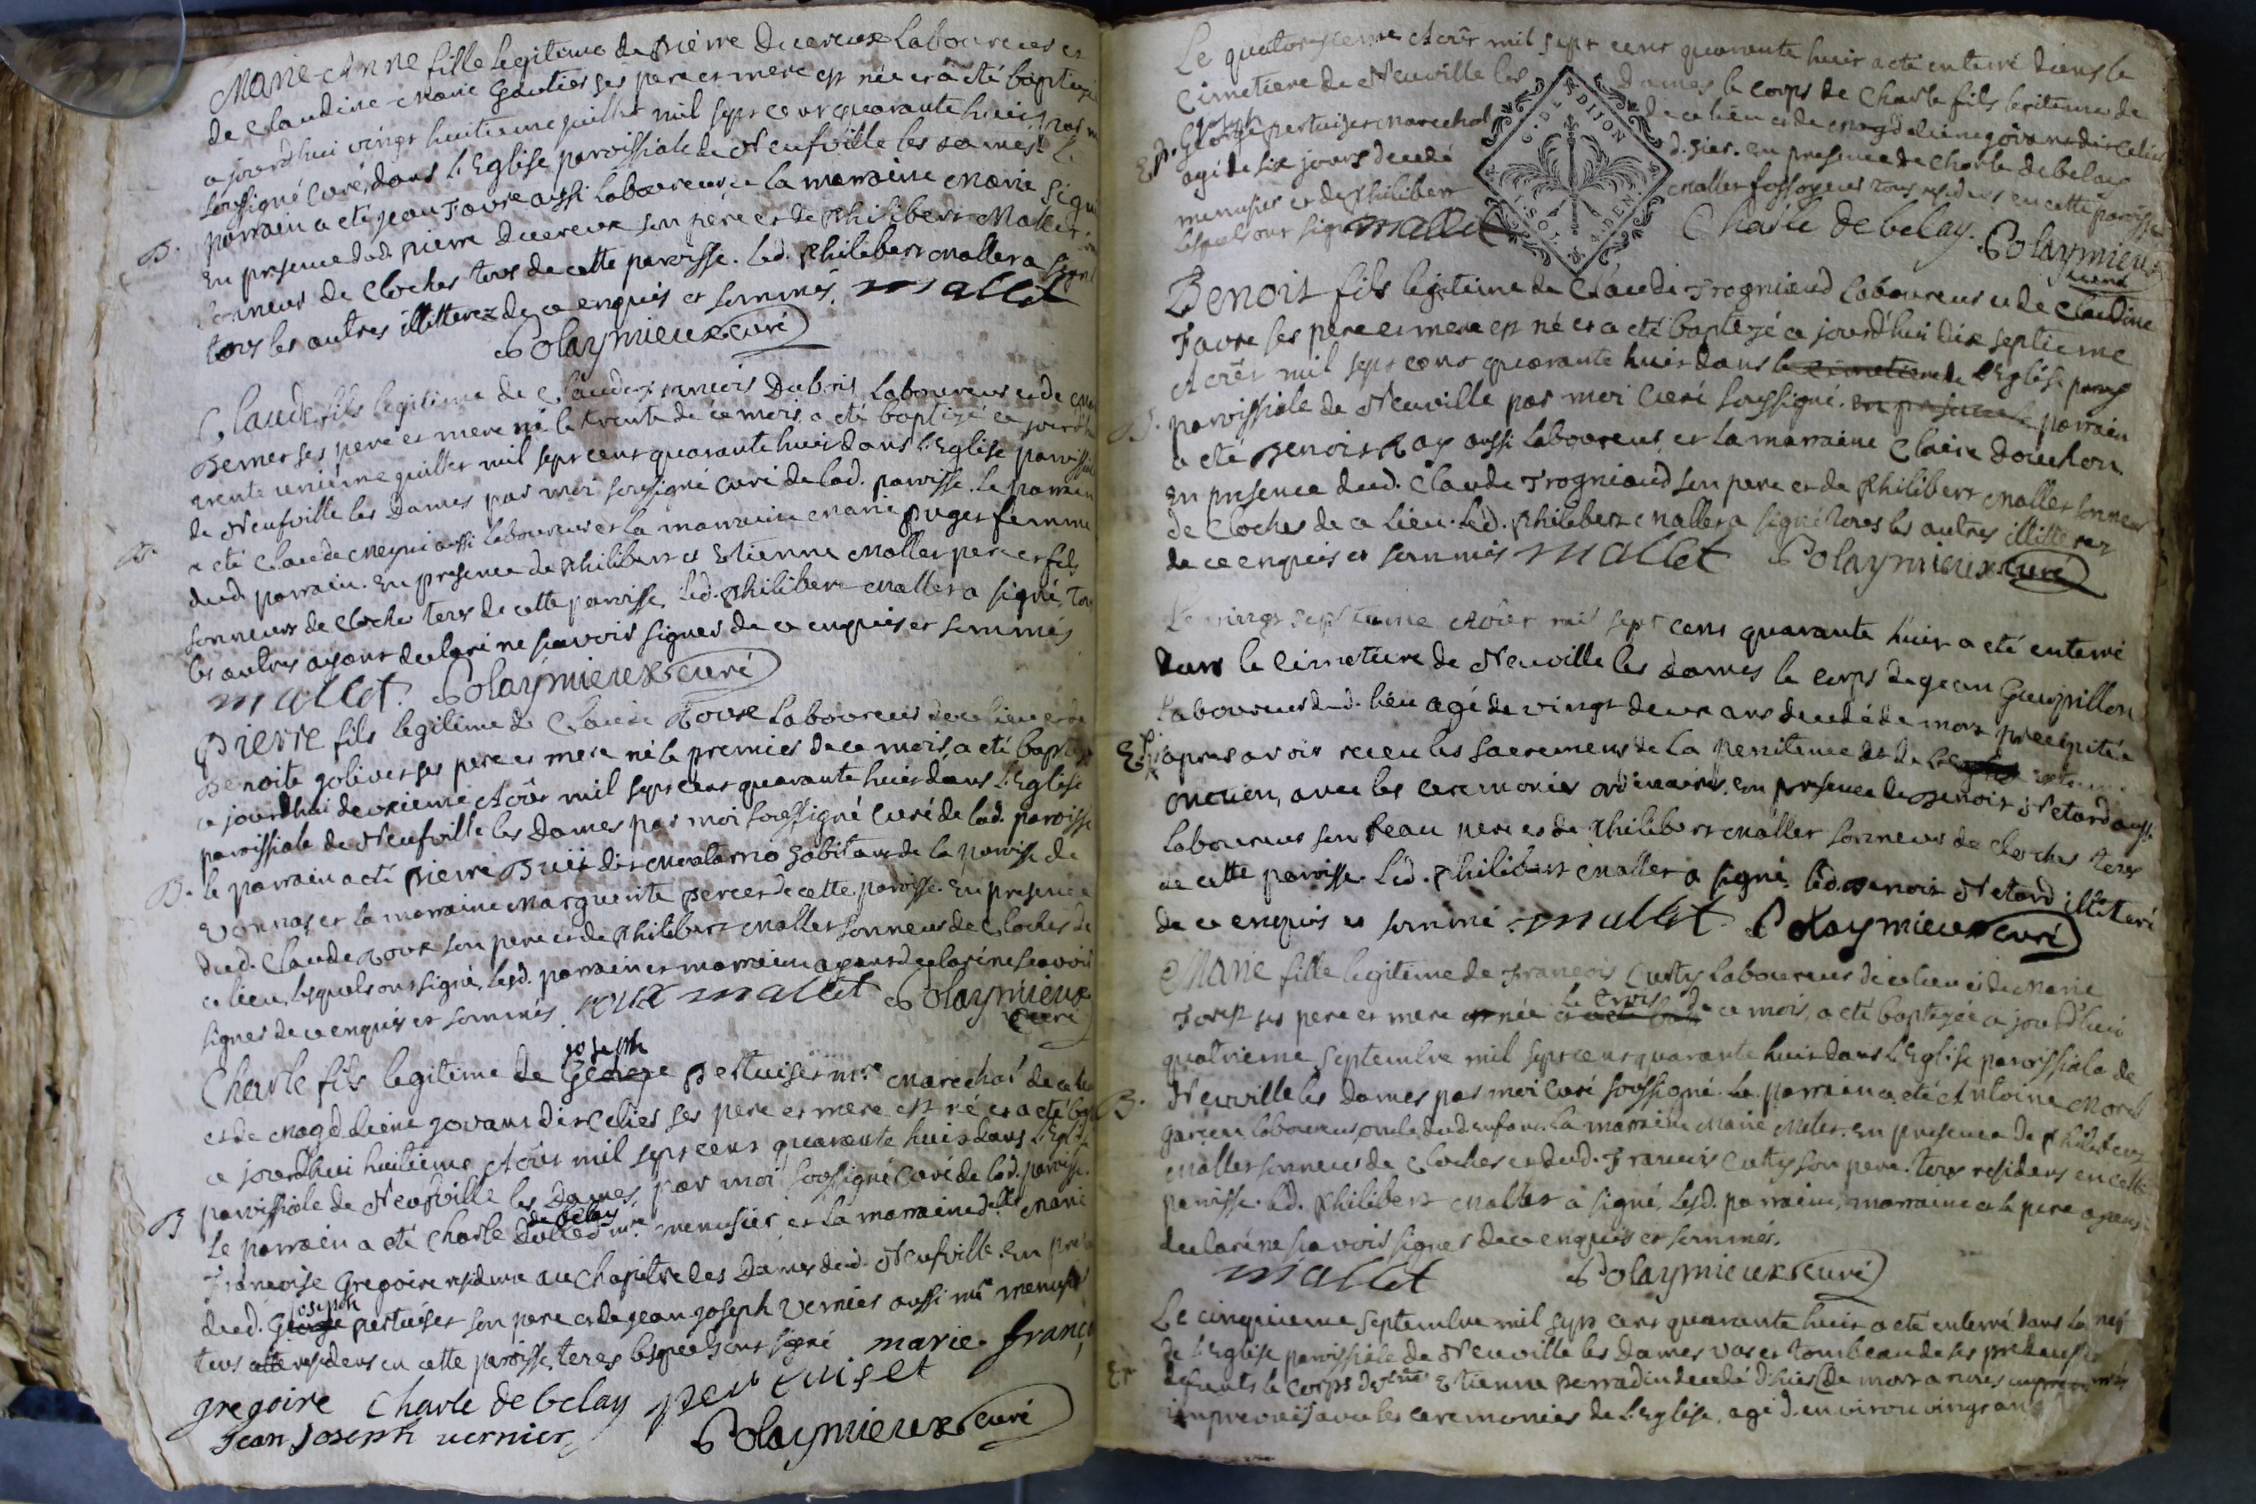 Marie-Anne fille legitime de Pierre Ducreux Laboureur et
de Claudine-Marie Gautier ses pere et mere est née et a été baptizée
ajourdhui vingt huitieme juillet mil sept cent quarante huit par m
soussigné curé dans l'Eglise paroissiale de Neufville les Dames. Le
parrain a eté jean Favre aussi laboureur et la marraine Marie
En presence dud. pierre Ducreux son pére et de Philibert Mallet
B.
sonneur de cloches tous de cette paroisse. Led. Philibert Mallet a signé
tous les autres illitterez de ce enquis et sommés. mallet
Polaymieux curé
Claude fils legitime de Claude françois Dubris Laboureur et de
Bernet ses pere et mere né le trente de ce mois, a eté baptizé ce jourdh
trente unieme juillet mil sept cent quarante huit dans l'Eglise paroissiale
de Neufville les Dames par moi soussigné curé de lad. paroisse. Le parrain
B.
a eté Claude Meyni aussi laboureur et la marraine Marie puget femme
dud. parrain. En presence de Philibert et Etienne Mallet pere et fils
sonneurs de cloches tous de cette paroisse, led. Philibert Mallet a signé, to
les autres ayant declaré ne scavoir signer de ce enquis et sommés
mallet. Polaymieux curé
Pierre fils legitime de Claude Roux Laboureur de ce lieu et de
Benoite golivet ses pere et mere né le premier de ce mois, a eté baptizé
ce jourdhui deuxieme Août mil sept cent quarante huit dans l'Eglise
paroissiale de Neufville les Dames par moi soussigné curé de lad. paroisse
B. le parrain a eté pierre habitant de la paroisse de
Vonnas et la marraine Marguerite percet de cette paroisse. En presence
dud. Claude Roux son pere et de Philibert Mallet sonneur de cloches de
ce lieu, lesquels ont signé, lesd. parrain et marraine ayant declaré ne scavoir
signer de ce enquis et sommés. roux mallet Polaymieux
curé
joseph
Charle fils legitime de George Pertuiset mre Marechal de ce lieu
et de Magdeleine govant dit Celier ses pere et mere est né et a eté bap
ce jourdhui huitieme Août mil sept cent quarante huit dans l'Eglise
paroissiale de Neufville les Dames, par moi soussigné curé de lad. paroisse.
B
de belay
Le parrain a eté Charle mre menusier, et la marraine dlle Marie
Françoise Gregoire residente au Chapitre des Dames dud. Neufville. En pre
joseph
dud. George pertuiset son pere et de jean joseph Vernier aussi mre menusier
tous residens en cette paroisse, lesquels ont signé marie. franço
gregoire Charle de belay pertuiset
Jean Joseph vernier Polaymieux curé
Le quatorzieme Août mil sept cent quarante huit a eté enterré dans le
Cimetiere de Neuville les Dames le corps de Charle fils legitime de
joseph
Ep. George pertuiset marechal de ce lieu et de Magdeleine govant dit Celier
agé de six jours decedé d'hier. en presence de Charle de belay
menusier et de Philibert Mallet fossoyeur tous residens en cette paroisse
lesquels ont signé mallet Charle de belay. Polaymieux
curé
G. D. DIJON
I. SOL. 4. DEN.
Benoit fils legitime de Claude Trogniaud laboureur et de Claudine
Favre ses pere et mere est né et a eté baptizé ce jourdhui dix septieme
Août mil sept cent quarante huit dans le cimetiere de l'Eglise
paroissiale de Neuville par moi curé soussigné. en presence parrain
B.
a eté Benoit Ray aussi laboureur, et la marraine Claire Douchon.
En presence dud. Claude Trogniaud son pere et de Philibert Mallet sonneur
de cloches de ce lieu. Led. Philibert Mallet a signé tous les autres illitterez
de ce enquis et sommés mallet Polaymieux curé
Le vingt septieme Août mil sept cent quarante huit a eté enterré
dans le cimetiere de Neuville les Dames le corps de jean Guepillon
laboureur dud. lieu agé de vingt deux ans decedé de mort precipitée
Ep. apres avoir receu les sacremens de la penitence et de
onction, avec les ceremonies ordinaires, en presence de Benoit Netard aussi
laboureur son beau pere et de Philibert Mallet sonneur de cloches tous
de cette paroisse. Led. Philibert Mallet a signé. led. Benoit Netard illiteré
de ce enquis et sommé. mallet Polaymieux curé
Marie fille legitime de François Cutty Laboureur de ce lieu et de Marie
le trois de
Forest ses pere et mere née ce mois, a eté baptizée ce jourd'hui
quatrieme septembre mil sept cent quarante huit dans l'Eglise paroissiale de
B.
Neuville les Dames par moi curé soussigné. le parrain a eté Antoine Morel
garçon laboureur, oncle dud enfant. La marraine Marie Milet. en presence de Philibert
Mallet sonneur de cloches et dud. François Cutty son pere. tous residens en cette
paroisse. led. Philibert Mallet a signé. Lesd. parrain, marraine et le pere ayant
declaré ne scavoir signer de ce enquis et sommés.
mallet Polaymieux curé
Le cinquieme septembre mil sept cent quarante huit a eté enterré dans la nef
de l'Eglise paroissiale de Neuville les Dames tombeau de ses predecesseurs
Ep
defunts le corps Etienne Perradin decedé d'hier de mort
imprevuë avec les ceremonies de l'Eglise, agé d'environ vingt ans